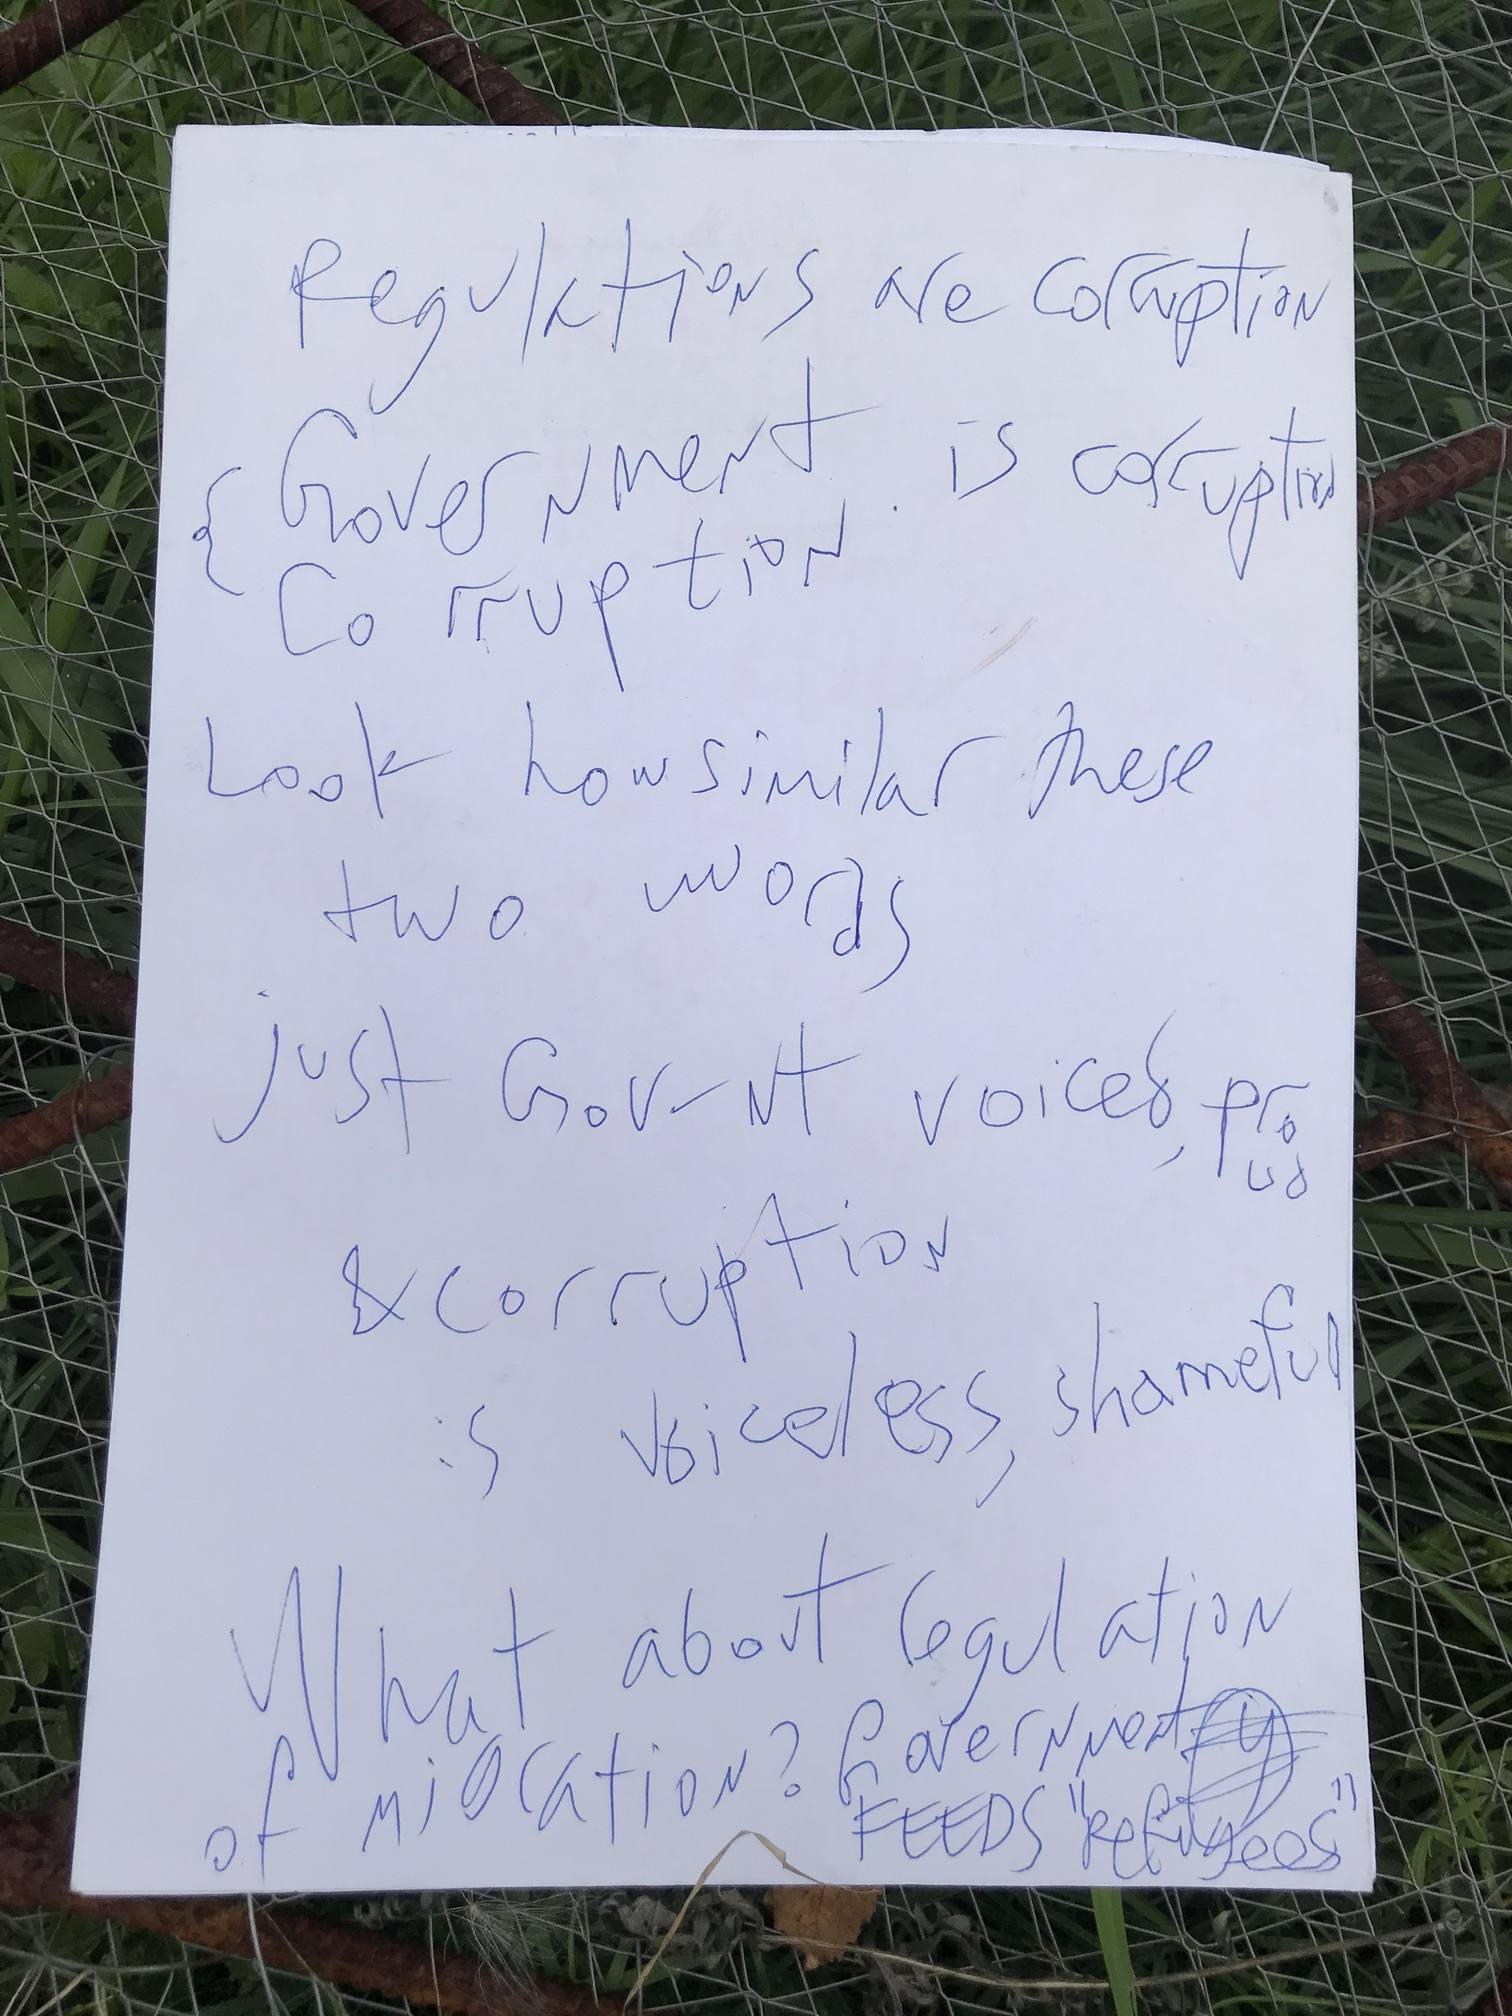 Regulations are corruption
{ Government is corruption
Corruption
Look how similar these
two words
just Gov-nt voiced, pro
ud
& corruption
is voiceless, shameful
What about regulation
of migration? Government
FEEDS "Refugees"